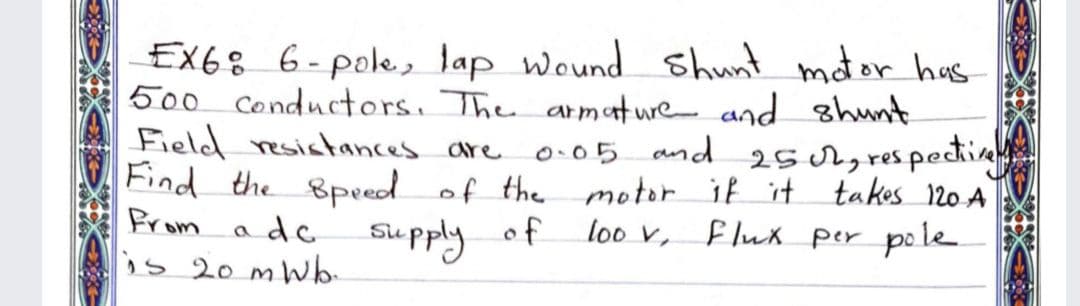 EX6: 6-pole, lap wound shunt motor has
500 conductors. The armature and shunt
Field resistances are 0.05 and 25 Ω, respectively
Find the speed of the motor if it takes 120 A
From a dc supply of 100 V, Flux per pole
is 20 mWb.